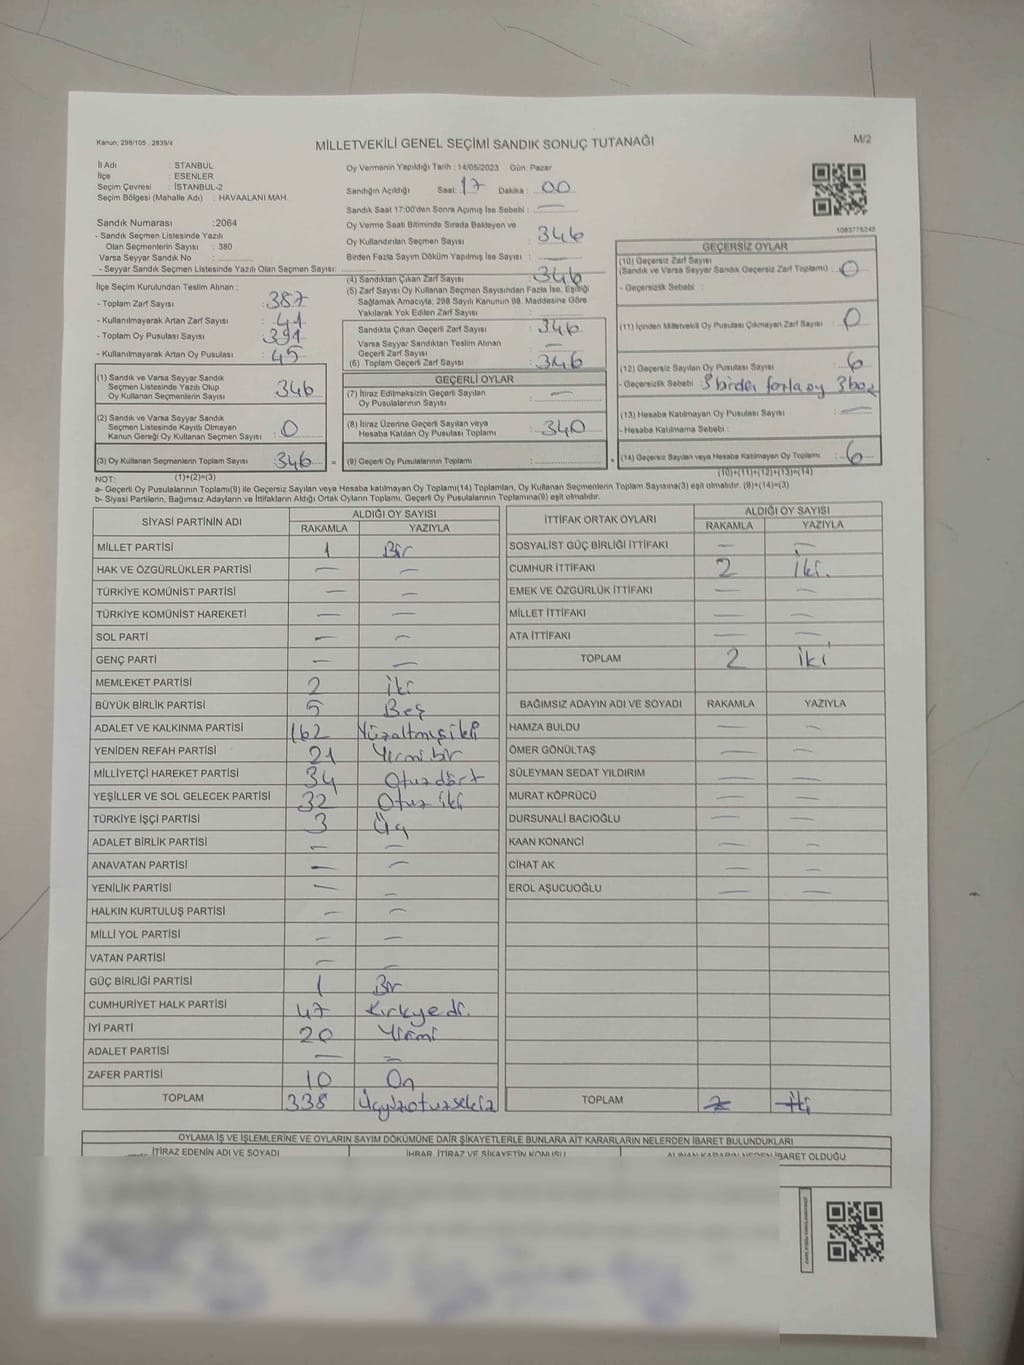 Kanun; 298/105 , 2839/4
MİLLETVEKİLİ GENEL SEÇİMİ SANDIK SONUÇ TUTANAĞI
M/2
İl Adı : STANBUL
İlçe : ESENLER
Seçim Çevresi : İSTANBUL-2
Seçim Bölgesi (Mahalle Adı) : HAVAALANI MAH.
Sandık Numarası :2064
- Sandık Seçmen Listesinde Yazılı
Olan Seçmenlerin Sayısı : 380
Varsa Seyyar Sandık No :
- Seyyar Sandık Seçmen Listesinde Yazılı Olan Seçmen Sayısı:
İlçe Seçim Kurulundan Teslim Alınan :
- Toplam Zarf Sayısı : 387
- Kullanılmayarak Artan Zarf Sayısı : 41
- Toplam Oy Pusulası Sayısı : 391
- Kullanılmayarak Artan Oy Pusulası : 45
(1) Sandık ve Varsa Seyyar Sandık
Seçmen Listesinde Yazılı Olup
Oy Kullanan Seçmenlerin Sayısı : 346
(2) Sandık ve Varsa Seyyar Sandık
Seçmen Listesinde Kayıtlı Olmayan
Kanun Gereği Oy Kullanan Seçmen Sayısı : 0
(3) Oy Kullanan Seçmenlerin Toplam Sayısı : 346
Oy Vermenin Yapıldığı Tarih : 14/05/2023 Gün: Pazar
Sandığın Açıldığı Saat: 17 Dakika : 00
Sandık Saat 17:00'den Sonra Açımış İse Sebebi : —
Oy Verme Saati Bitiminde Sırada Bekleyen ve
Oy Kullandırılan Seçmen Sayısı : 346
Birden Fazla Sayım Döküm Yapılmış İse Sayısı : —
(4) Sandıktan Çıkan Zarf Sayısı : 346
(5) Zarf Sayısı Oy Kullanan Seçmen Sayısından Fazla İse, Eşitliği
Sağlamak Amacıyla, 298 Sayılı Kanunun 98. Maddesine Göre
Yakılarak Yok Edilen Zarf Sayısı :
Sandıkta Çıkan Geçerli Zarf Sayısı : 346
Varsa Seyyar Sandıktan Teslim Alınan
Geçerli Zarf Sayısı : —
(6) Toplam Geçerli Zarf Sayısı : 346
GEÇERLİ OYLAR
(7) İtiraz Edilmeksizin Geçerli Sayılan
Oy Pusulalarının Sayısı : —
(8) İtiraz Üzerine Geçerli Sayılan veya
Hesaba Katılan Oy Pusulası Toplamı : 340
= (9) Geçerli Oy Pusulalarının Toplamı :
1083775240
GEÇERSİZ OYLAR
(10) Geçersiz Zarf Sayısı
(Sandık ve Varsa Seyyar Sandık Geçersiz Zarf Toplamı) : 0
- Geçersizlik Sebebi :
(11) İçinden Milletvekili Oy Pusulası Çıkmayan Zarf Sayısı : 0
(12) Geçersiz Sayılan Oy Pusulası Sayısı : 6
- Geçersizlik Sebebi : 3 birden fazla oy 3 boş
(13) Hesaba Katılmayan Oy Pusulası Sayısı : —
- Hesaba Katılmama Sebebi :
+ (14) Geçersiz Sayılan veya Hesaba Katılmayan Oy Toplamı : 6
NOT: (1)+(2)=(3)
(10)+(11)+(12)+(13)=(14)
a- Geçerli Oy Pusulalarının Toplamı(9) ile Geçersiz Sayılan veya Hesaba katılmayan Oy Toplamı(14) Toplamları, Oy Kullanan Seçmenlerin Toplam Sayısına(3) eşit olmalıdır. (9)+(14)=(3)
b- Siyasi Partilerin, Bağımsız Adayların ve İttifakların Aldığı Ortak Oyların Toplamı, Geçerli Oy Pusulalarının Toplamına(9) eşit olmalıdır.
SİYASİ PARTİNİN ADI ALDIĞI OY SAYISI
RAKAMLA YAZIYLA
MİLLET PARTİSİ 1 Bir
HAK VE ÖZGÜRLÜKLER PARTİSİ — —
TÜRKİYE KOMÜNİST PARTİSİ — —
TÜRKİYE KOMÜNİST HAREKETİ — —
SOL PARTİ — —
GENÇ PARTİ — —
MEMLEKET PARTİSİ 2 İki
BÜYÜK BİRLİK PARTİSİ 5 Beş
ADALET VE KALKINMA PARTİSİ 162 Yüzaltmışiki
YENİDEN REFAH PARTİSİ 21 Yirmi bir
MİLLİYETÇİ HAREKET PARTİSİ 34 Otuz dört
YEŞİLLER VE SOL GELECEK PARTİSİ 32 Otuz iki
TÜRKİYE İŞÇİ PARTİSİ 3 Üç
ADALET BİRLİK PARTİSİ — —
ANAVATAN PARTİSİ — —
YENİLİK PARTİSİ — —
HALKIN KURTULUŞ PARTİSİ — —
MİLLİ YOL PARTİSİ — —
VATAN PARTİSİ — —
GÜÇ BİRLİĞİ PARTİSİ 1 Bir
CUMHURİYET HALK PARTİSİ 47 Kırkyedi.
İYİ PARTİ 20 Yirmi
ADALET PARTİSİ — —
ZAFER PARTİSİ 10 On
TOPLAM 338 Üçyüzotuzsekiz
İTTİFAK ORTAK OYLARI ALDIĞI OY SAYISI
RAKAMLA YAZIYLA
SOSYALİST GÜÇ BİRLİĞİ İTTİFAKI — —
CUMHUR İTTİFAKI 2 İki.
EMEK VE ÖZGÜRLÜK İTTİFAKI — —
MİLLET İTTİFAKI — —
ATA İTTİFAKI — —
TOPLAM 2 İki
BAĞIMSIZ ADAYIN ADI VE SOYADI RAKAMLA YAZIYLA
HAMZA BULDU — —
ÖMER GÖNÜLTAŞ — —
SÜLEYMAN SEDAT YILDIRIM — —
MURAT KÖPRÜCÜ — —
DURSUNALİ BACIOĞLU — —
KAAN KONANCİ — —
CİHAT AK — —
EROL AŞUCUOĞLU — —
TOPLAM 2 İki
OYLAMA İŞ VE İŞLEMLERİNE VE OYLARIN SAYIM DÖKÜMÜNE DAİR ŞİKAYETLERLE BUNLARA AİT KARARLARIN NELERDEN İBARET BULUNDUKLARI
İTİRAZ EDENİN ADI VE SOYADI İHBAR, İTİRAZ VE ŞİKAYETİN KONUSU ALINAN KARARIN NEDEN İBARET OLDUĞU